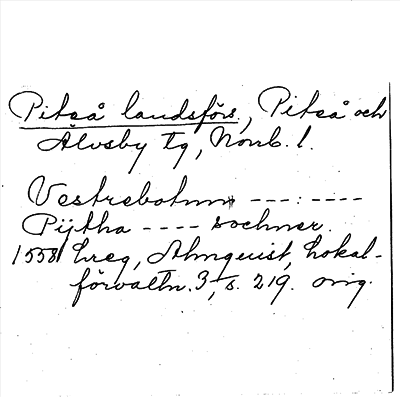 Piteå landsförs., Piteå och
Älvsby tg, Norrb. l.
Vestrebotnnn ---:----
Pijtha ---- sochner.
1558 hreg, Almquist, Lokal-
förvaltn. 3, s. 219. orig.